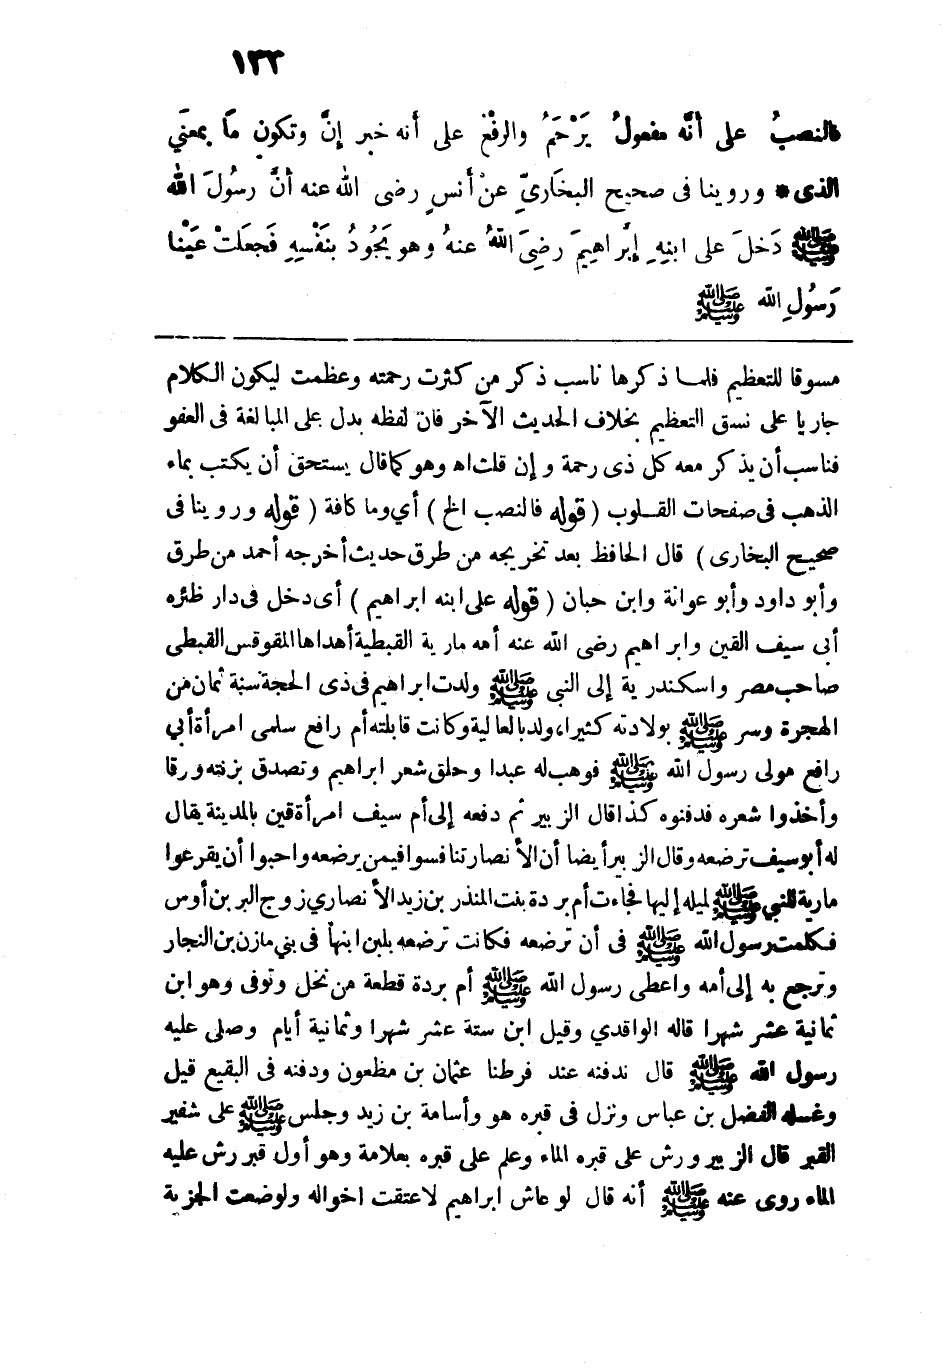 ١٣٣
فالنصبُ على أنَّه مفعولُ يَرْحَمُ والرفْعُ على أنه خبر إنَّ وتكون مَا بمعنَي
الذى * وروينا فى صحيح البخَاريِّ عنْ أنسٍ رضى الله عنه أنَّ رسُولَ الله
ﷺ دَخلَ على ابنِهِ إبْرَاهِيمَ رضِىَ اللهُ عنهُ وهو يَجُودُ بنَفْسِهِ فَجعَلَتْ عَيْنا
رَسُولِ الله ﷺ
مسوقا للتعظيم فلما ذكرها ناسب ذكر من كثرت رحمته وعظمت ليكون الكلام
جاريا على نسق التعظيم بخلاف الحديث الآخر فان لفظه يدل على المبالغة فى العفو
فناسب أن يذكر معه كل ذى رحمة و إن قلت اه وهو كما قال يستحق أن يكتب بماء
الذهب فى صفحات القلوب ( قوله فالنصب الخ ) أي وما كافة ( قوله وروينا فى
صحيح البخارى ) قال الحافظ بعد تخريجه من طرق حديث أخرجه أحمد من طرق
وأبو داود وأبو عوانة وابن حبان ( قوله على ابنه ابراهيم ) أى دخل فى دار ظئره
أبى سيف القين وابراهيم رضى الله عنه أمه مارية القبطية أهداها المقوقس القبطى
صاحب مصر واسكندرية إلى النبى ﷺ ولدت ابراهيم فى ذى الحجة سنة ثمان من
الهجرة وسر ﷺ بولادته كثيرا، ولد بالعالية وكانت قابلته أم رافع سلمى امرأة أبي
رافع مولى رسول الله ﷺ فوهب له عبدا وحلق شعر ابراهيم وتصدق بزنته ورقا
وأخذوا شعره فدفنوه كذا قال الزبير ثم دفعه إلى أم سيف امرأة قين بالمدينة يقال
له أبوسيف ترضعه وقال الزبير أيضا أن الأنصار تنافسوا فيمن يرضعه واحبوا أن يفرعوا
مارية للنبي ﷺ لميله إليها فجاءت أم بردة بنت المنذر بن زيد الأنصاري زوج البر بن أوس
فكلمت رسول الله ﷺ فى أن ترضعه فكانت ترضعه بلبن ابنها فى بني مازن بن النجار
وترجع به إلى أمه واعطى رسول الله ﷺ أم بردة قطعة من نخل وتوفى وهو ابن
ثمانية عشر شهرا قاله الواقدي وقيل ابن ستة عشر شهرا وثمانية أيام وصلى عليه
رسول الله ﷺ قال ندفنه عند فرطنا عثمان بن مظعون ودفنه فى البقيع قيل
وغسله الفضل بن عباس ونزل فى قبره هو وأسامة بن زيد وجلس ﷺ على شفير
القبر قال الزبير ورش على قبره الماء وعلم على قبره بعلامة وهو أول قبر رش عليه
الماء روى عنه ﷺ أنه قال لو عاش ابراهيم لاعتقت اخواله ولوضعت الجزية